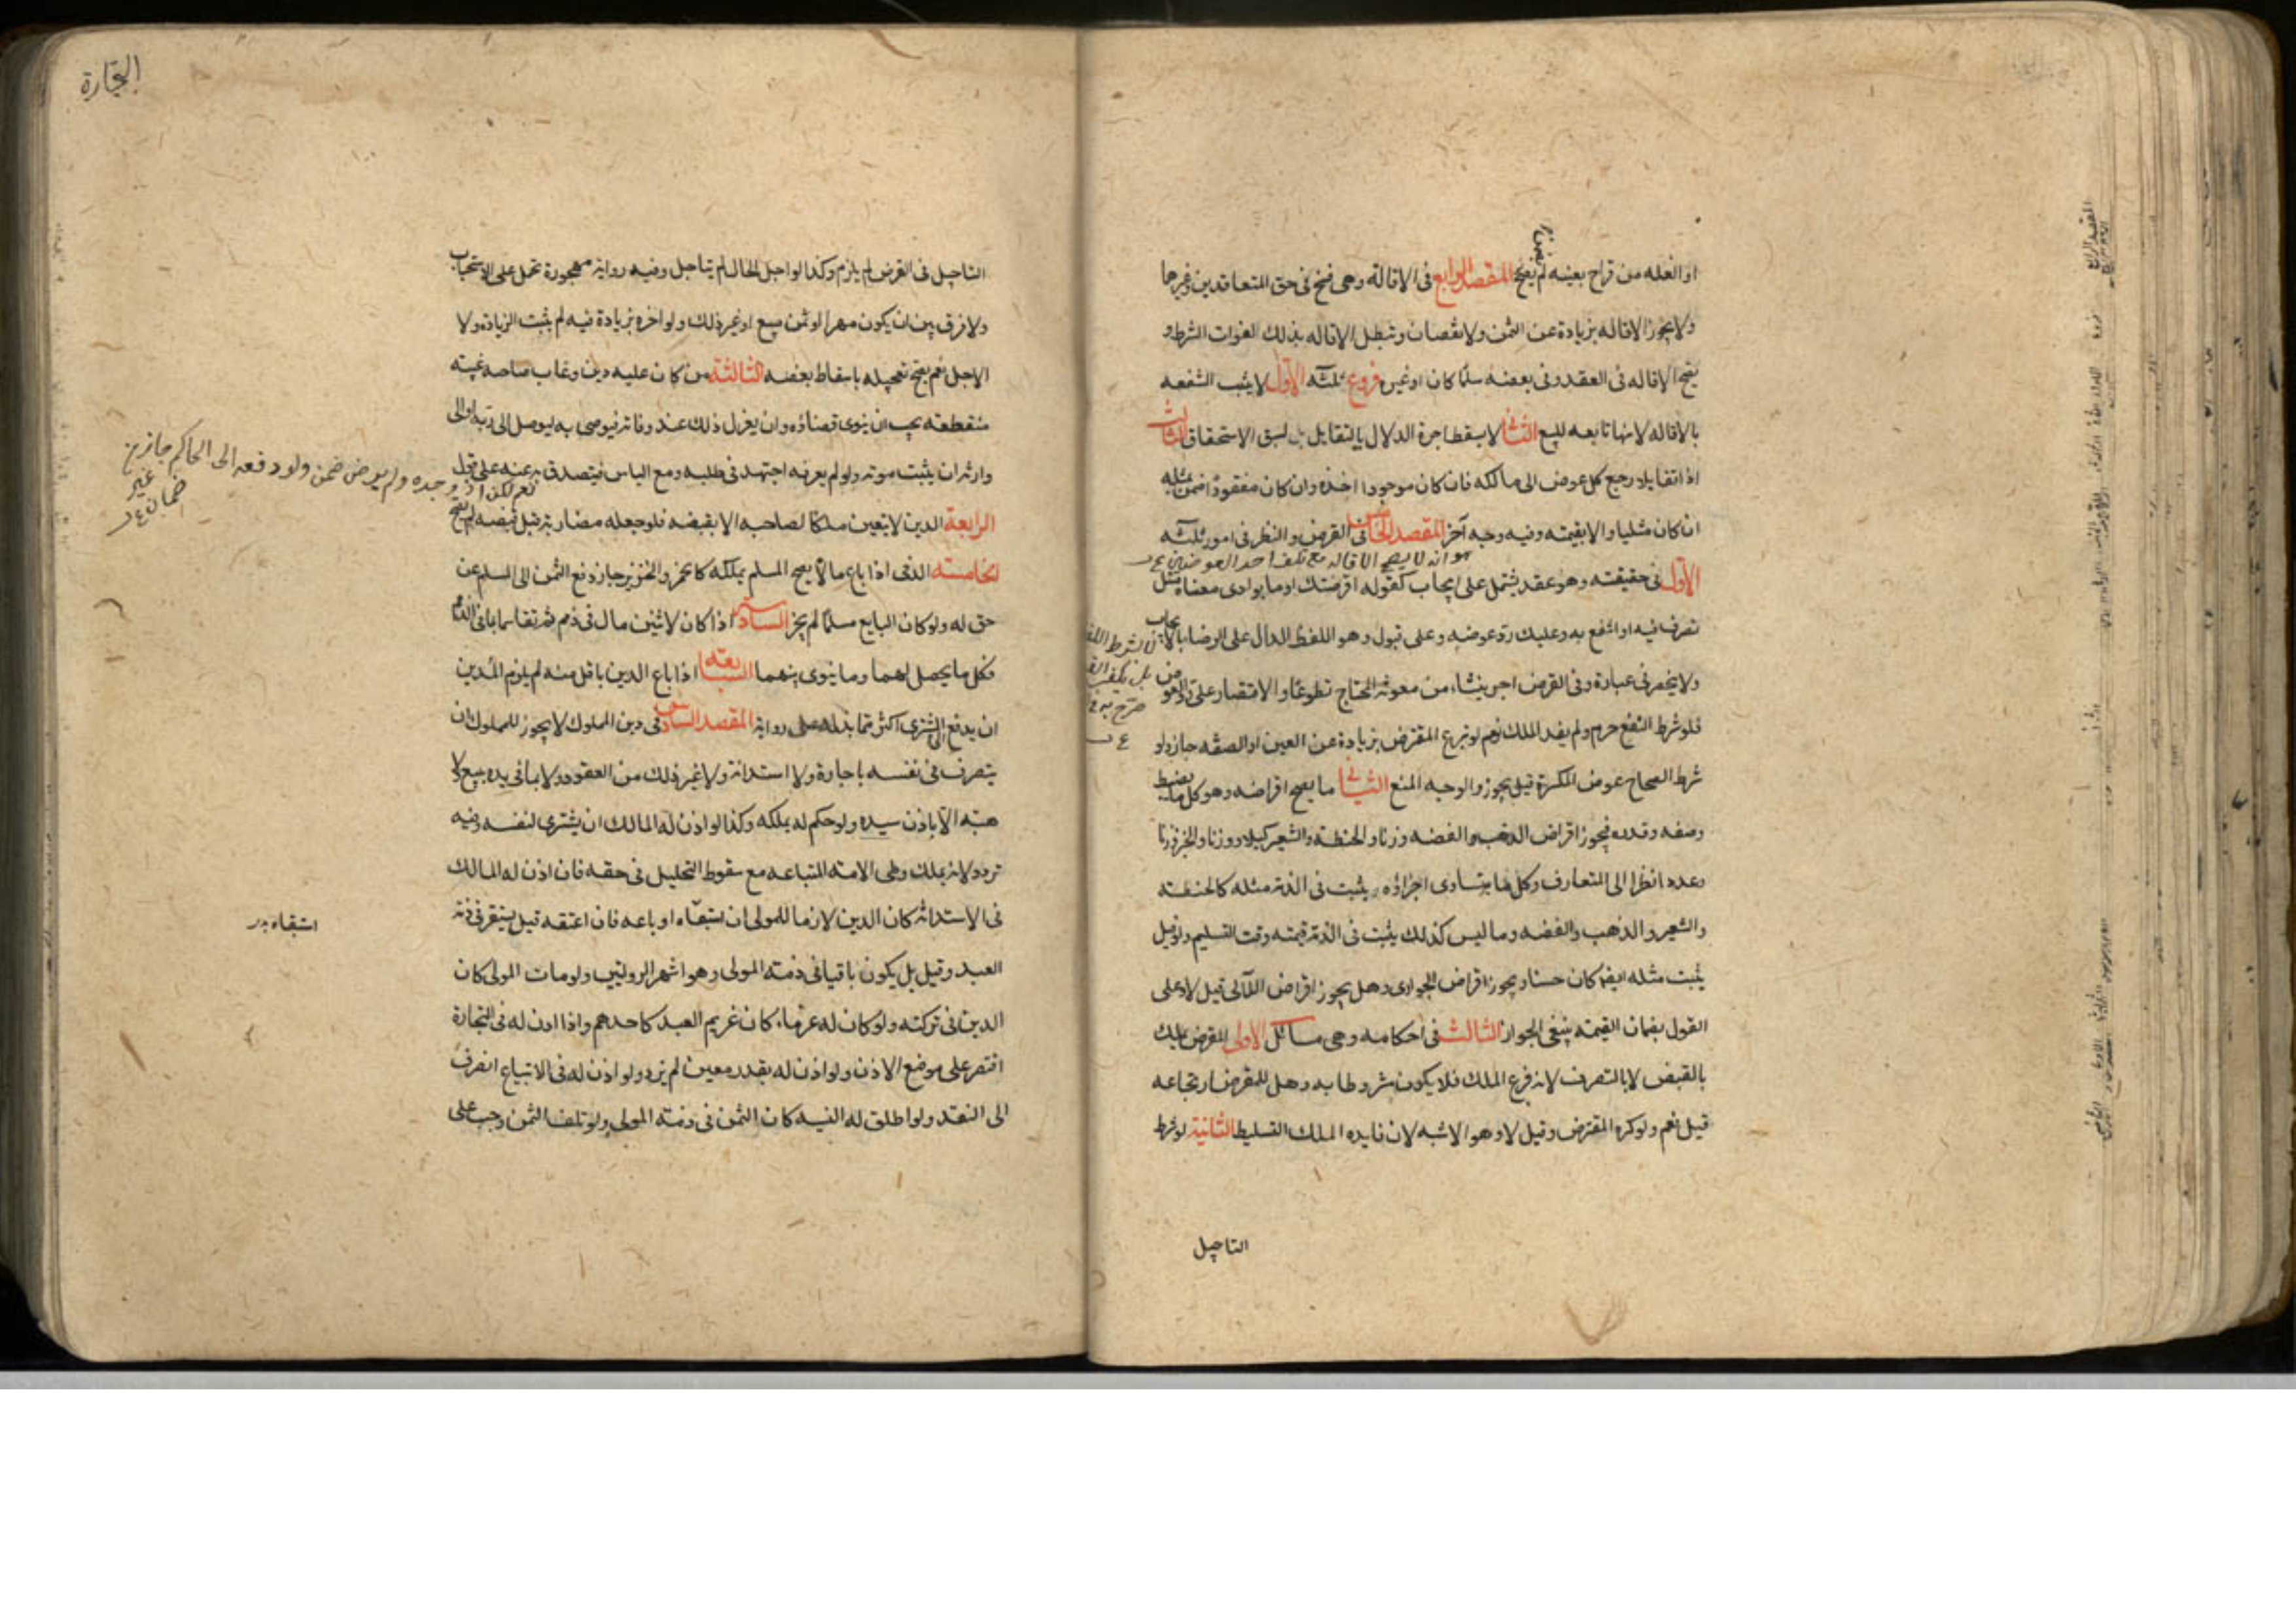 او الغله من قراح بعينه لم يصح المقصد الرابع فى الاقالة وهى فسخ فى حق المتعاقدين وغيرهما
ولا يجوز الاقاله بزيادة عن الثمن ولا نقصان وتبطل الاقاله بذلك لفوات الشرط و
يصح الاقاله فى العقد وفى بعضه سلما كان او غيره فروع ثلثه الاول لا يثبت الشفعه
بالاقاله لانها تابعه للبيع الثانى لا يسقط اجرة الدلال بالتقايل لسبق الاستحقاق الثالث
اذا تقايلا رجع كل عوض الى مالكه فان كان موجودا اخذه وان كان مفقودا ضمن بمثله
ان كان مثليا والا بقيمته وفيه وجه آخر المقصد الخامس فى القرض والنظر فى امور ثلثه
هو انه لا يصح الاقاله مع تلف احد العوضين
الاول فى حقيقته وهو عقد يشتمل على ايجاب كقوله اقرضتك او ما يودى معناه مثل
تصرف فيه او انتفع به وعليك رد عوضه وعلى قبول وهو اللفظ الدال على الرضا بالايجاب
ولا ينحصر فى عبارة وفى القرض اجر ينشاء من معونة المحتاج تطوعا والاقتصار على رد العوض
فلو شرط النفع حرم ولم يفد الملك نعم لو تبرع المقترض بزيادة عن العين او الصفه جاز ولو
شرط الصحاح عوض المكسرة قيل يجوز والوجه المنع الثانى ما يصح اقراضه وهو كل ما يضبط
وصفه وقدره فيجوز اقراض الذهب والفضه وزنا والحنطة والشعير كيلا ووزنا والخبز وزنا
وعددا نظرا الى المتعارف وكل ما يتساوى اجزاؤه يثبت فى الذمة مثله كالحنطته
والشعير والذهب والفضه وما ليس كذلك يثبت فى الذمة قيمته وقت التسليم ولو قيل
يثبت مثله ايضا كان حسنا ويجوز اقراض الجوارى وهل يجوز اقراض اللآلى قيل لا وعلى
القول بضمان القيمته ينبغى الجواز الثالث فى احكامه وهى مسائل الاولى القرض يملك
بالقبض لا بالتصرف لانه فرع الملك فلا يكون مشروطا به وهل للمقرض ارتجاعه
قيل نعم ولو كره المقترض وقيل لا وهو الاشبه لان فايده الملك التسليط الثانية لو شرط
التاجيل
التجارة
التاجيل فى القرض لم يلزم وكذا لو اجل الحال لم يتاجل وفيه رواية مهجورة تحمل على الاستحباب
ولا فرق بين ان يكون مهرا او ثمن مبيع او غير ذلك ولو اخره بزيادة فيه لم يثبت الزيادة ولا
الاجل نعم يصح تعجيله باسقاط بعضه الثالثة من كان عليه دين وغاب صاحبه غيبته
منقطعته يجب ان ينوى قضاؤه وان يعزل ذلك عند وفاته فيوصى به ليوصل الى ربه او الى
وارثه ان يثبت موته ولو لم يعرفه اجتهد فى طلبه ومع الياس فيتصدق به عنه على قول
الرابعة الدين لا يتعين ملكا لصاحبه الا بقبضه فلو جعله مضاربة قبل قبضه لم يصح
الخامسته الذمى اذا باع ما لا يصح المسلم يملكه كالخمر والخنزير جاز دفع الثمن الى المسلم عن
حق له ولو كان البايع مسلما لم يجز السادسة اذا كان لاثنين مال فى ذمم فتقاسما بما فى الذمم
فكل ما يحصل لهما وما ينوى بينهما السابعة اذا باع الدين باقل منه لم يلزم المدين
ان يدفع الى المشترى اكثر مما بذله على رواية المقصد السادس فى دين المملوك لا يجوز للمملوك ان
يتصرف فى نفسه باجارة ولا استدانة ولا غير ذلك من العقود ولا بما فى يده ببيع ولا
هبته الا باذن سيده ولو حكم له بملكه وكذا لو اذن له المالك ان يشترى لنفسه وفيه
تردد لانه يملك وطى الامته المبتاعه مع سقوط التحليل فى حقه فان اذن له المالك
فى الاستدانة كان الدين لازما للمولى ان استبقاه او باعه فان اعتقه قيل يستقر فى ذمة
استبقاه
العبد وقيل بل يكون باقيا فى ذمته المولى وهو اشهر الروايتين ولو مات المولى كان
الدين فى تركته ولو كان له غرماء كان غريم العبد كاحدهم واذا اذن له فى التجارة
اقتصر على موضع الاذن ولو اذن له بقدر معين لم يزد ولو اذن له فى الابتياع انصرف
الى النقد ولو اطلق له النسيه كان الثمن فى ذمته المولى ولو تلف الثمن وجب على